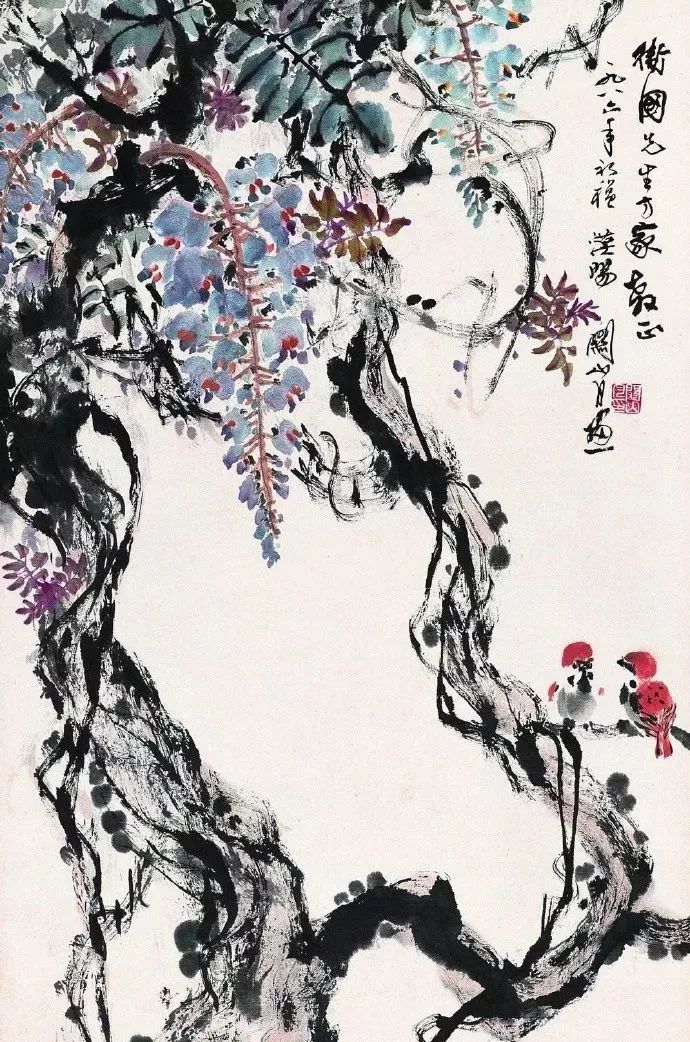 衛國先生方家教正
一九八六年於穗 漠陽 關山月畫